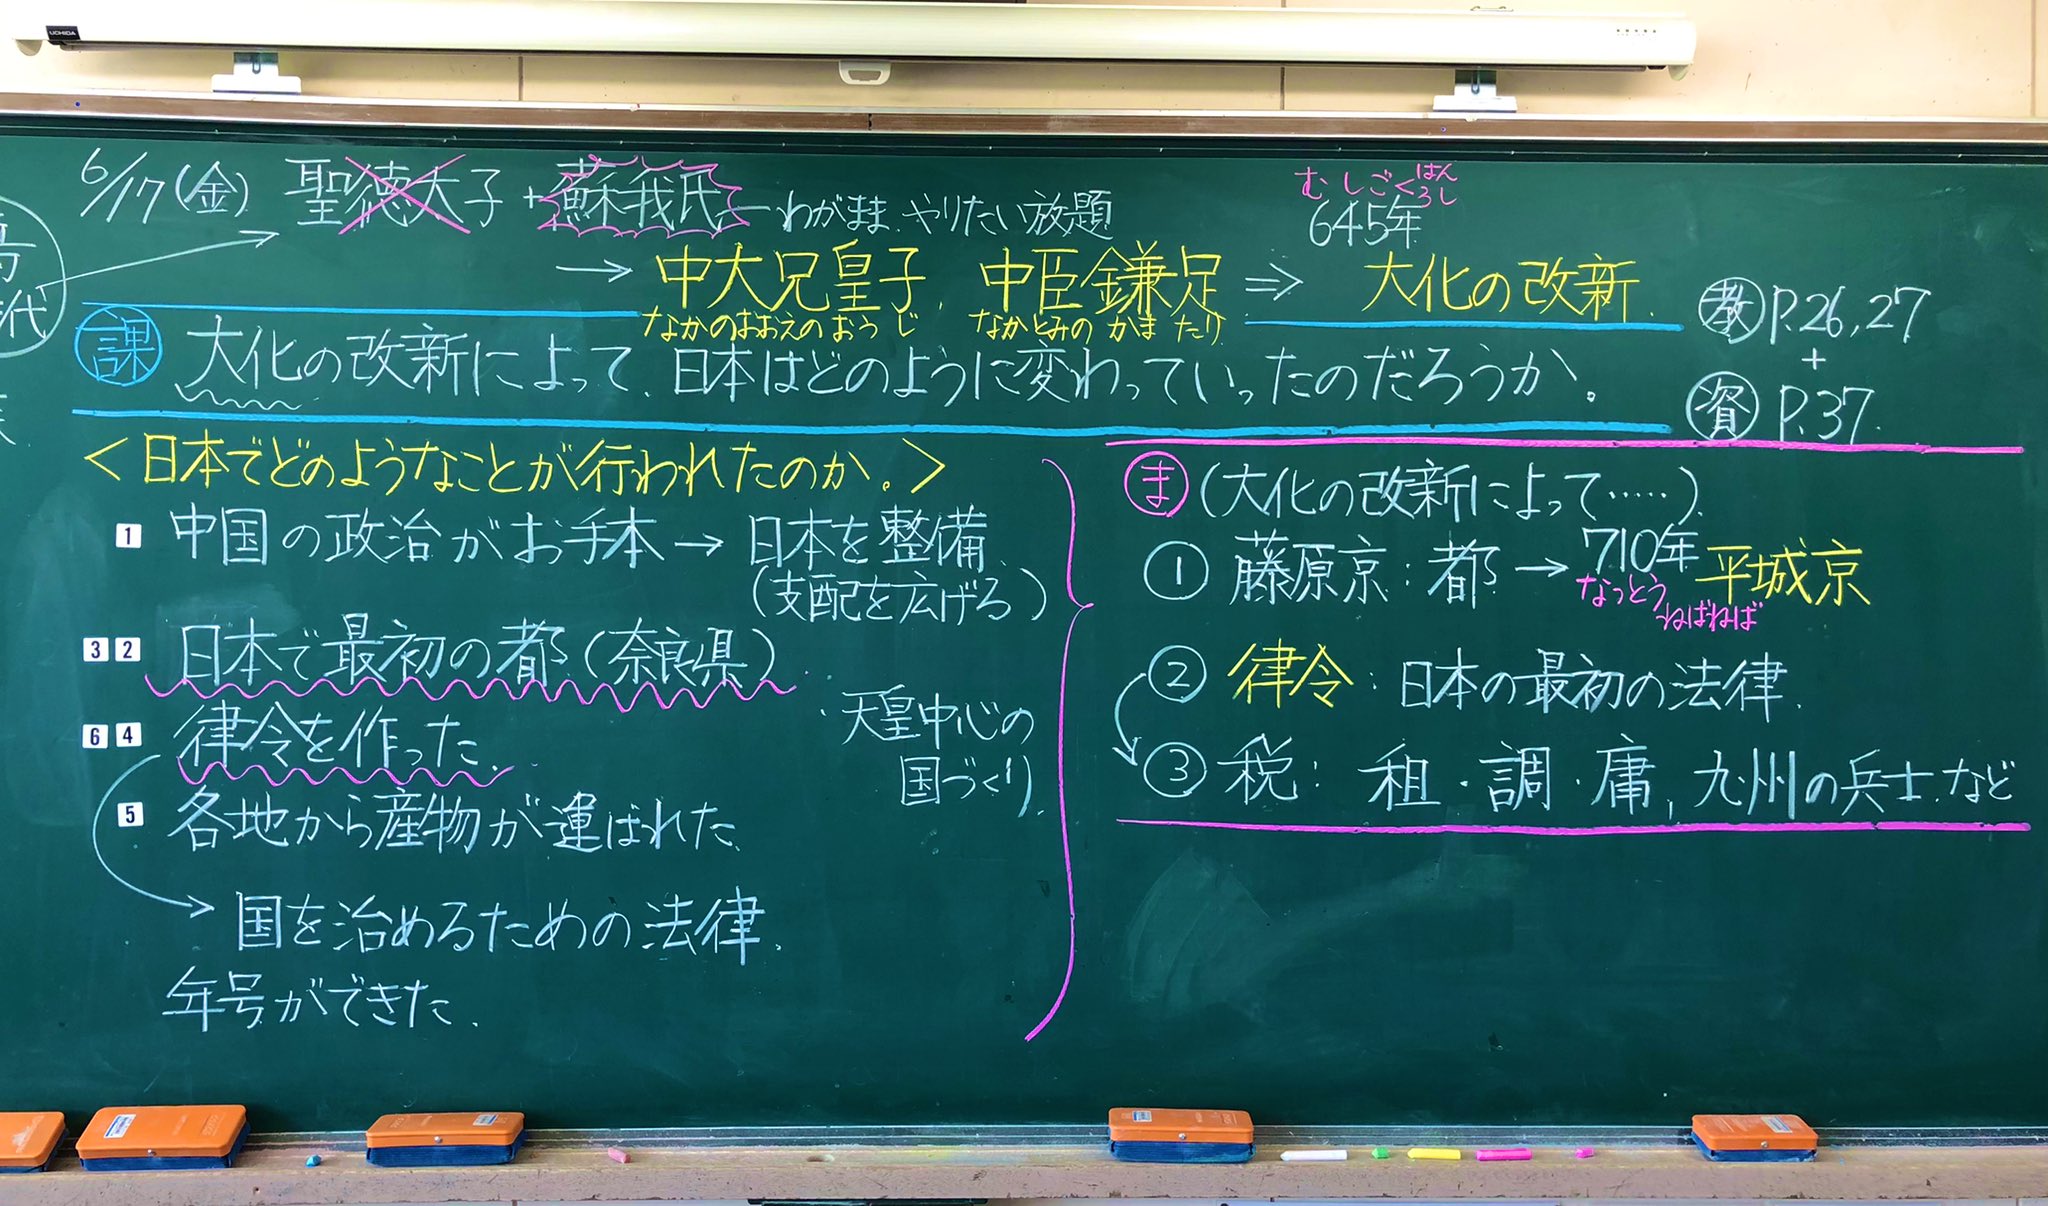 6/17(金) 聖徳太子 + 蘇我氏 ― わがまま、やりたい放題
むしごくはんろし
645年
→ 中大兄皇子、中臣鎌足 ⇒ 大化の改新
なかのおおえのおうじ なかとみのかまたり
課 大化の改新によって、日本はどのように変わっていったのだろうか。
教 P.26,27
+
資 P.37
<日本でどのようなことが行われたのか。>
1 中国の政治がお手本 → 日本を整備
(支配を広げろ)
3 2 日本で最初の都(奈良県)
6 4 律令を作った
天皇中心の
国づくり
5 各地から産物が運ばれた
→ 国を治めるための法律
年号ができた
ま (大化の改新によって……)
① 藤原京:都 → 710年 平城京
なっとう
ねばねば
② 律令:日本の最初の法律
③ 税:租・調・庸、九州の兵士など
代
UCHIDA